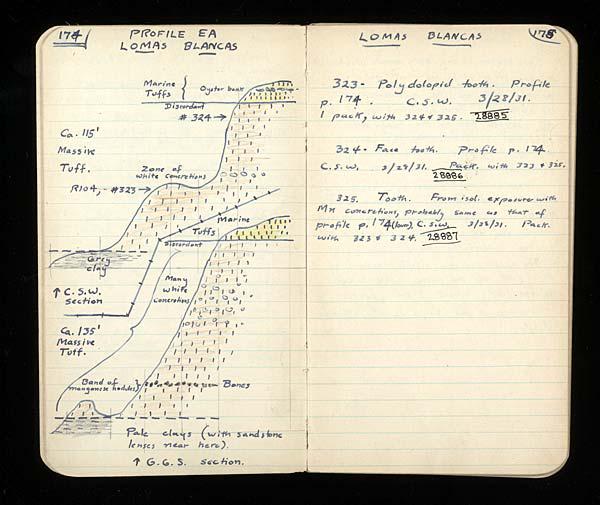 174
PROFILE EA
LOMAS BLANCAS
Marine
Tuffs
Oyster bank
Discordant
# 324
Ca. 115'
Massive
Tuff.
Zone of
white concretions
R104, - #323
Marine
Tuffs
Discordant
Grey
clay
↑ C.S.W.
section
Many
white
concretions
Ca. 135'
Massive
Tuff.
Band of
manganese nodules
Bones
Pale clays (with sandstone
lenses near here).
↑ G.G.S. section.
175
LOMAS BLANCAS
323- Polydolopid tooth. Profile
p. 174. C.S.W. 3/28/31.
1 pack, with 324 & 325. 28885
324- Face tooth. Profile p. 174.
C.S.W. 3/28/31. Pack. with 323 & 325.
28886
325. Tooth. From isol. exposure with
Mn concretions, probably same as that of
profile p. 174 C.S.W. 3/28/31. Pack.
with 323 & 324. 28887